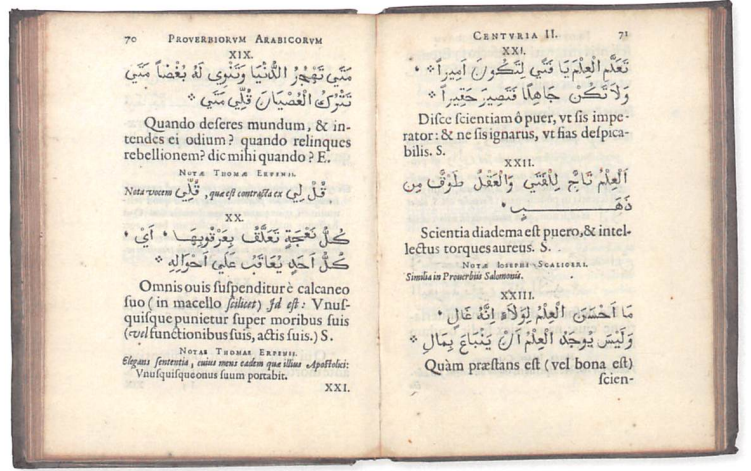 70 PROVERBIORVM ARABICORVM
XIX.
مَتَي تَهْجُرُ الدُّنْيَا وَتَنْوِي لَهُ بُغْضاً مَتَي
تَتْرُكُ الْعُصْيَانَ قُلِّي مَتَي
Quando deſeres mundum, & in-
tendes ei odium? quando relinques
rebellionem? dic mihi quando? E.
NOTÆ THOMÆ ERPENII.
Nota vocem قُلِّي, quæ eſt contracta ex قُلْ لِي
XX.
كُلُّ نَعْجَةٍ تَعَلَّقُ بِعَرْقُوبِهَا ٠ أَيْ ٠
كُلُّ أَحَدٍ يُعَاقَبُ عَلَي أَحْوَالِهِ
Omnis ouis ſuſpenditur è calcaneo
ſuo (in macello ſcilicet) Id eſt: Vnuſ-
quiſque punietur ſuper moribus ſuis
(vel functionibus ſuis, actis ſuis.) S.
NOTAE THOMAE ERPENII.
Elegans ſententia, cuius mens eadem quæ illius Apoſtolici:
Vnuſquiſque onus ſuum portabit.
XXI.
CENTVRIA II. 71
XXI.
تَعَلَّمِ الْعِلْمَ يَا فَتَي لِتَكُونَ أَمِيراً
وَلَا تَكُنْ جَاهِلًا فَتَصِيرَ حَقِيراً
Diſce ſcientiam ô puer, vt ſis impe-
rator: & ne ſis ignarus, vt fias deſpica-
bilis. S.
XXII.
اَلْعِلْمُ تَاجٌ لِلْفَتَي وَالْعَقْلُ طَوْقٌ مِن
ذَهَبٍ
Scientia diadema eſt puero, & intel-
lectus torques aureus. S.
NOTÆ IOSEPHI SCALIGERI.
Similia in Prouerbiis Salomonis.
XXIII.
مَا أَحْسَنَ الْعِلْمَ لِوُلَاهُ إِنَّهُ غَالٍ
وَلَيْسَ يُوجَدُ الْعِلْمُ أَنْ يَنْبَاعَ بِمَالٍ
Quàm præſtans eſt (vel bona eſt)
ſcien-